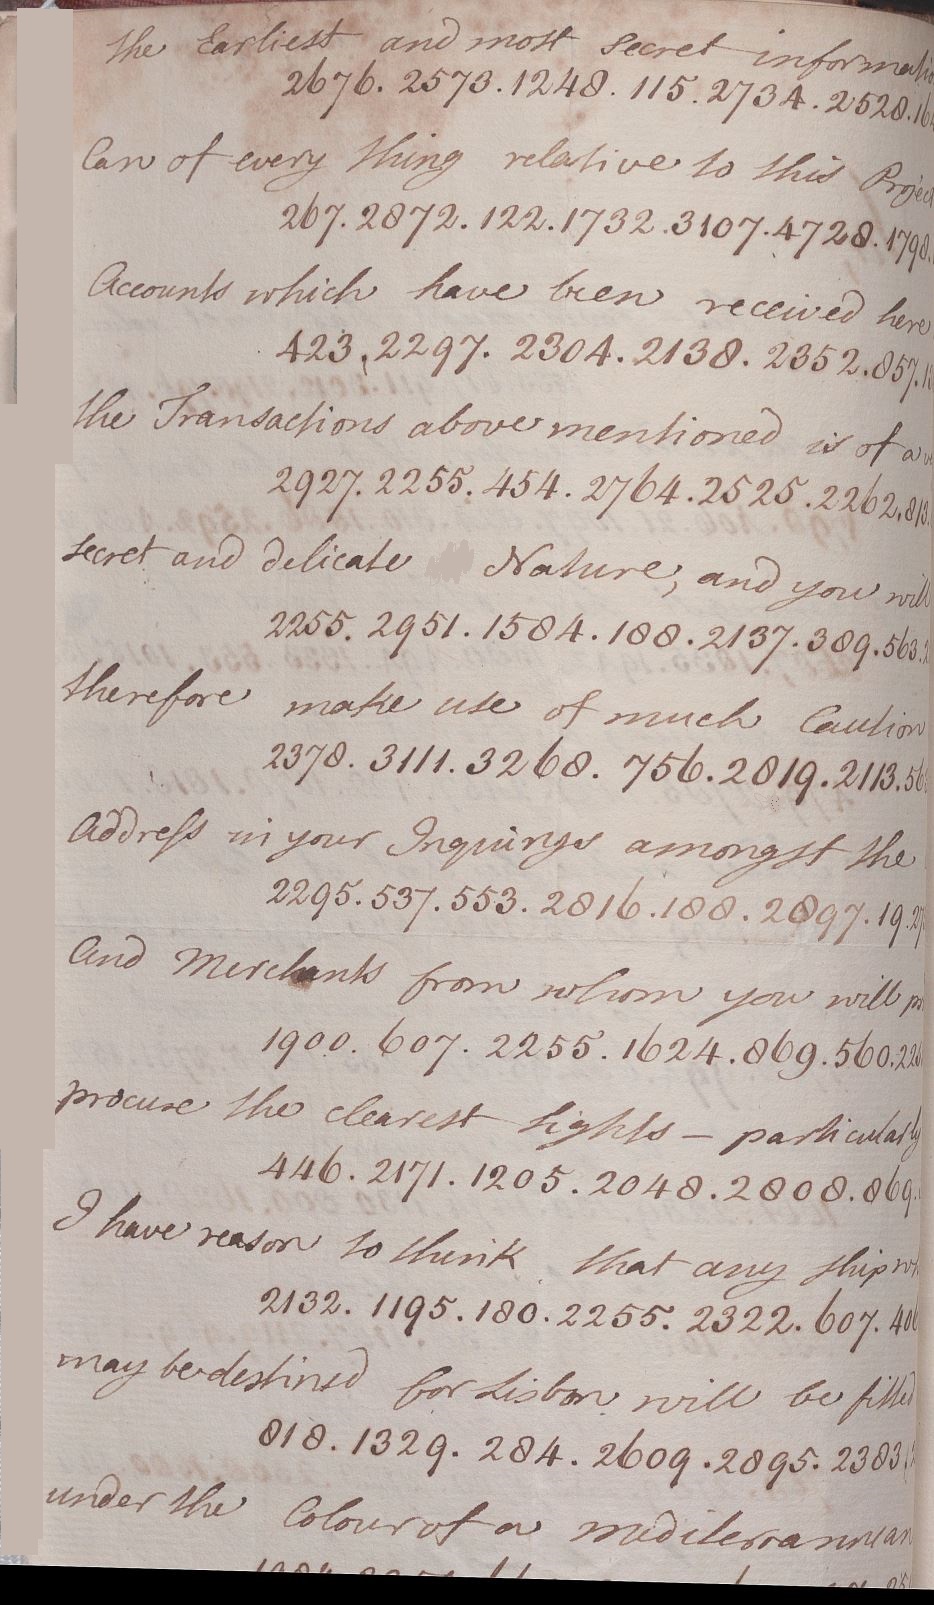 the Earliest and most secret informati
2676. 2573. 1248. 115. 2734. 2528. 16
Can of every thing relative to this Project
267. 2872. 122. 1732. 3107. 4728. 1798.
Accounts which have been received here
423. 2297. 2304. 2138. 2352. 857. 1
the Transactions above mentioned is of a
2927. 2255. 454. 2764. 2525. 2262. 813.
secret and delicate Nature, and you will
2255. 2951. 1584. 188. 2137. 389. 563.
therefore make use of much Caution
2378. 3111. 3268. 756. 2819. 2113. 56
Address in your Inquirys amongst the
2295. 537. 553. 2816. 188. 2897. 19. 2
And Merchants from whom you will
1900. 607. 2255. 1624. 869. 560. 22
procure the clearest lights – particularly
446. 2171. 1205. 2048. 2808. 869.
I have reason to think that any ship wh
2132. 1195. 180. 2255. 2322. 607. 406
may be destined for Lisbon will be fitted
818. 1329. 284. 2609. 2895. 2383
under the Colour of a mediterranean